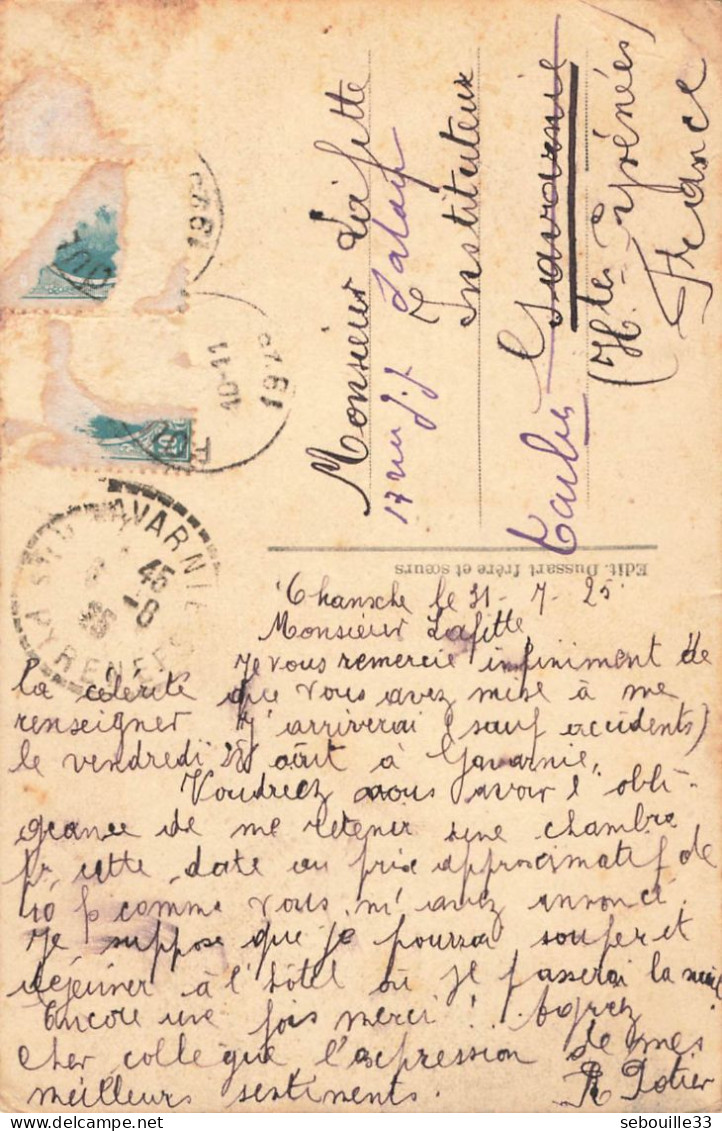 Monsieur Lafitte
17 rue J.J
Instituteur
Gavarnie
Tarbes
(Htes Pyrénées)
France
Edit. Dussart frère et sœurs
le 31-7-25
Monsieur Lafitte,
Je vous remercie infiniment de
la célérité que vous avez mise à me
renseigner J'arriverai (sauf accidents)
le vendredi août à Gavarnie,
Voudriez vous avoir l'obli-
geance de me retenir une chambre
pr cette date au prix approximatif de
10 f comme vous m'avez annoncé.
Je suppose que je pourrai souper et
déjeuner à l'hôtel où je passerai la nuit
Encore une fois merci! Agréez
cher collegue l'expression de mes
meilleurs sentiments. R Potier
GAVARNIE
PYRENEES
45
10-11
1925
sebouille33